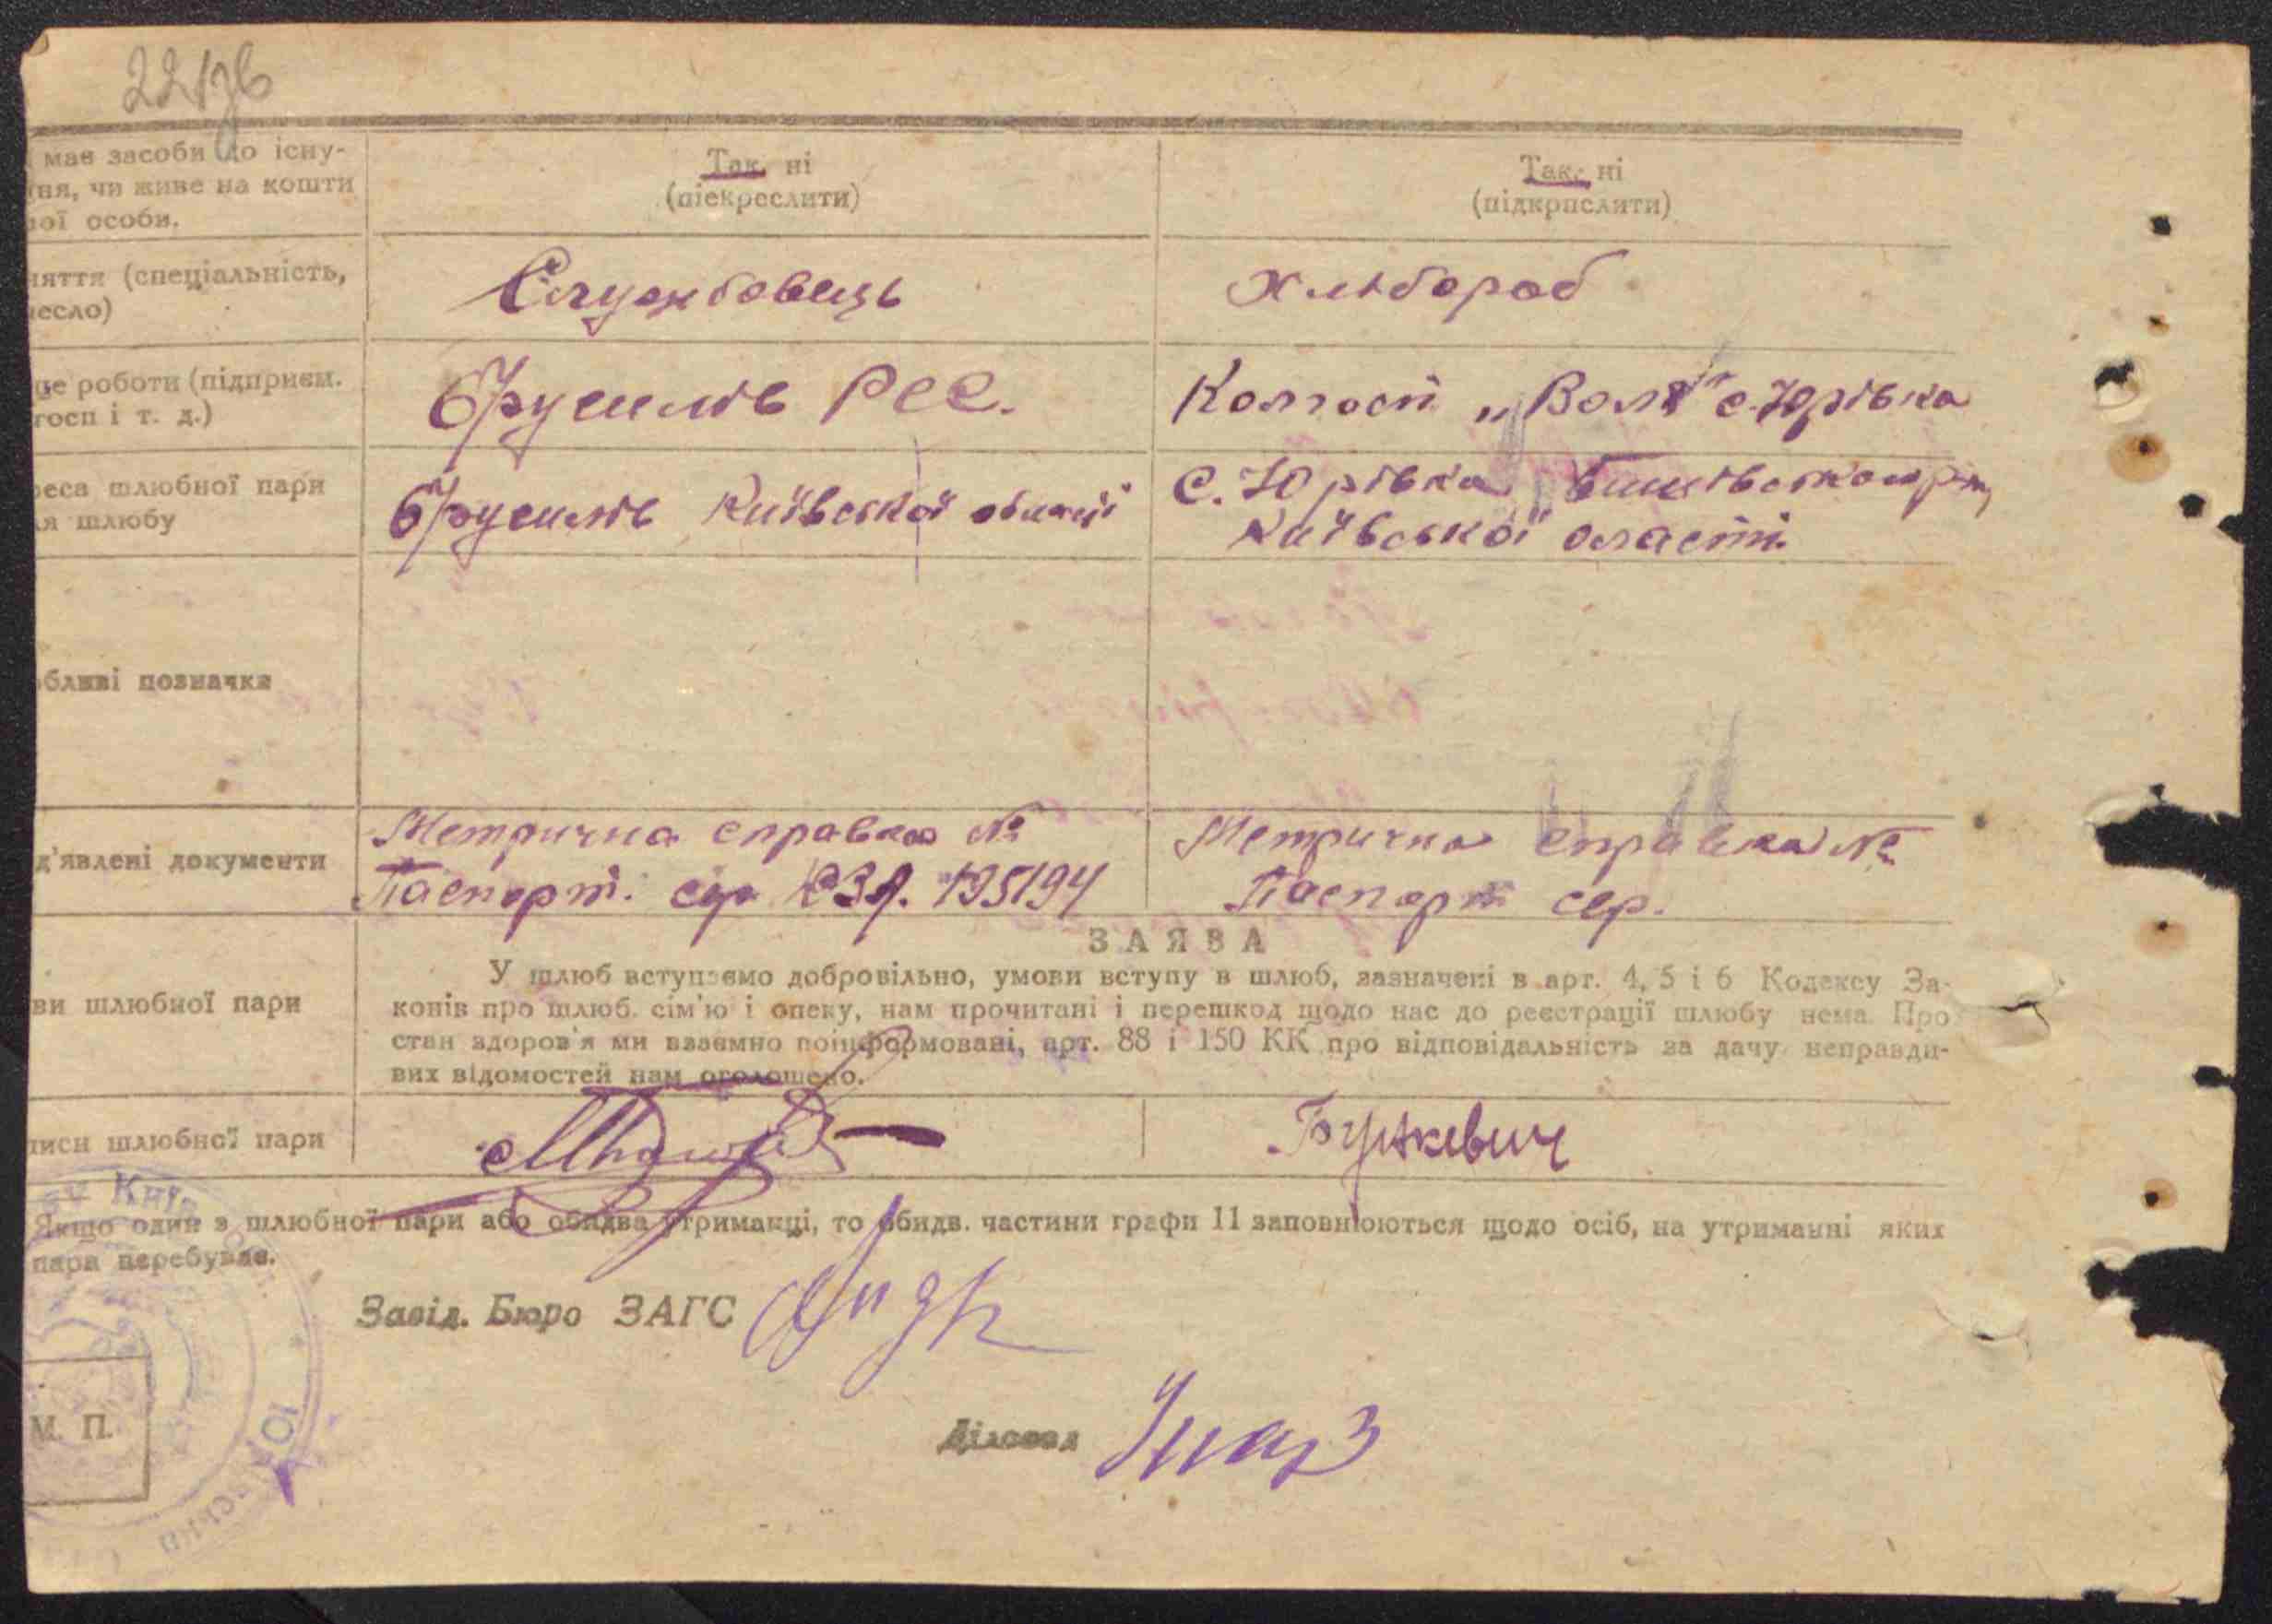 має засоби до існу-
ня, чи живе на кошти
особи.
Так, ні
(піекреслити)
Так, ні
(підкрпслити)
няття (спеціальність,
есло)
Службовець
Хлібороб
це роботи (підприєм.
госп і т. д.)
Брусилів РСС.
Колгосп „Воля" с. Юрівка
еса шлюбної пари
ля шлюбу
Брусилів Київської області
с. Юрівка
Київської оласті.
бливі позначки
д'явлені документи
Метрична справка №
Паспорт. сер 195194
Метрична справка №
Паспорт сер.
ЗАЯВА
ви шлюбної пари
У шлюб вступаємо добровільно, умови вступу в шлюб, зазначені в арт. 4, 5 і 6 Кодексу За-
конів про шлюб. сім'ю і опеку, нам прочитані і перешкод щодо нас до реєстрації шлюбу нема. Про
стан здоров'я ми взаємно поінформовані, арт. 88 і 150 КК про відповідальність за дачу неправди-
вих відомостей нам оголошено.
писи шлюбної пари
Буткевич
Якщо один з шлюбної пари або обидва утриманці, то обидв. частини графи 11 заповнюються щодо осіб, на утриманні яких
пара перебуває.
Завід. Бюро ЗАГС
М. П.
Діловод